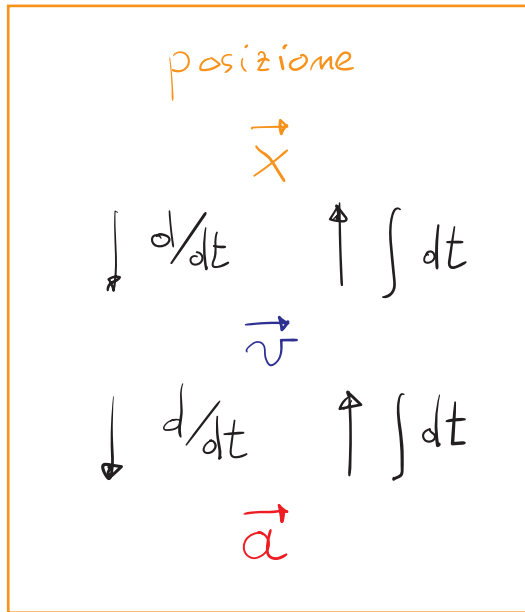 posizione
x⃗
↓ d/dt ↑ ∫ dt
v⃗
↓ d/dt ↑ ∫ dt
a⃗